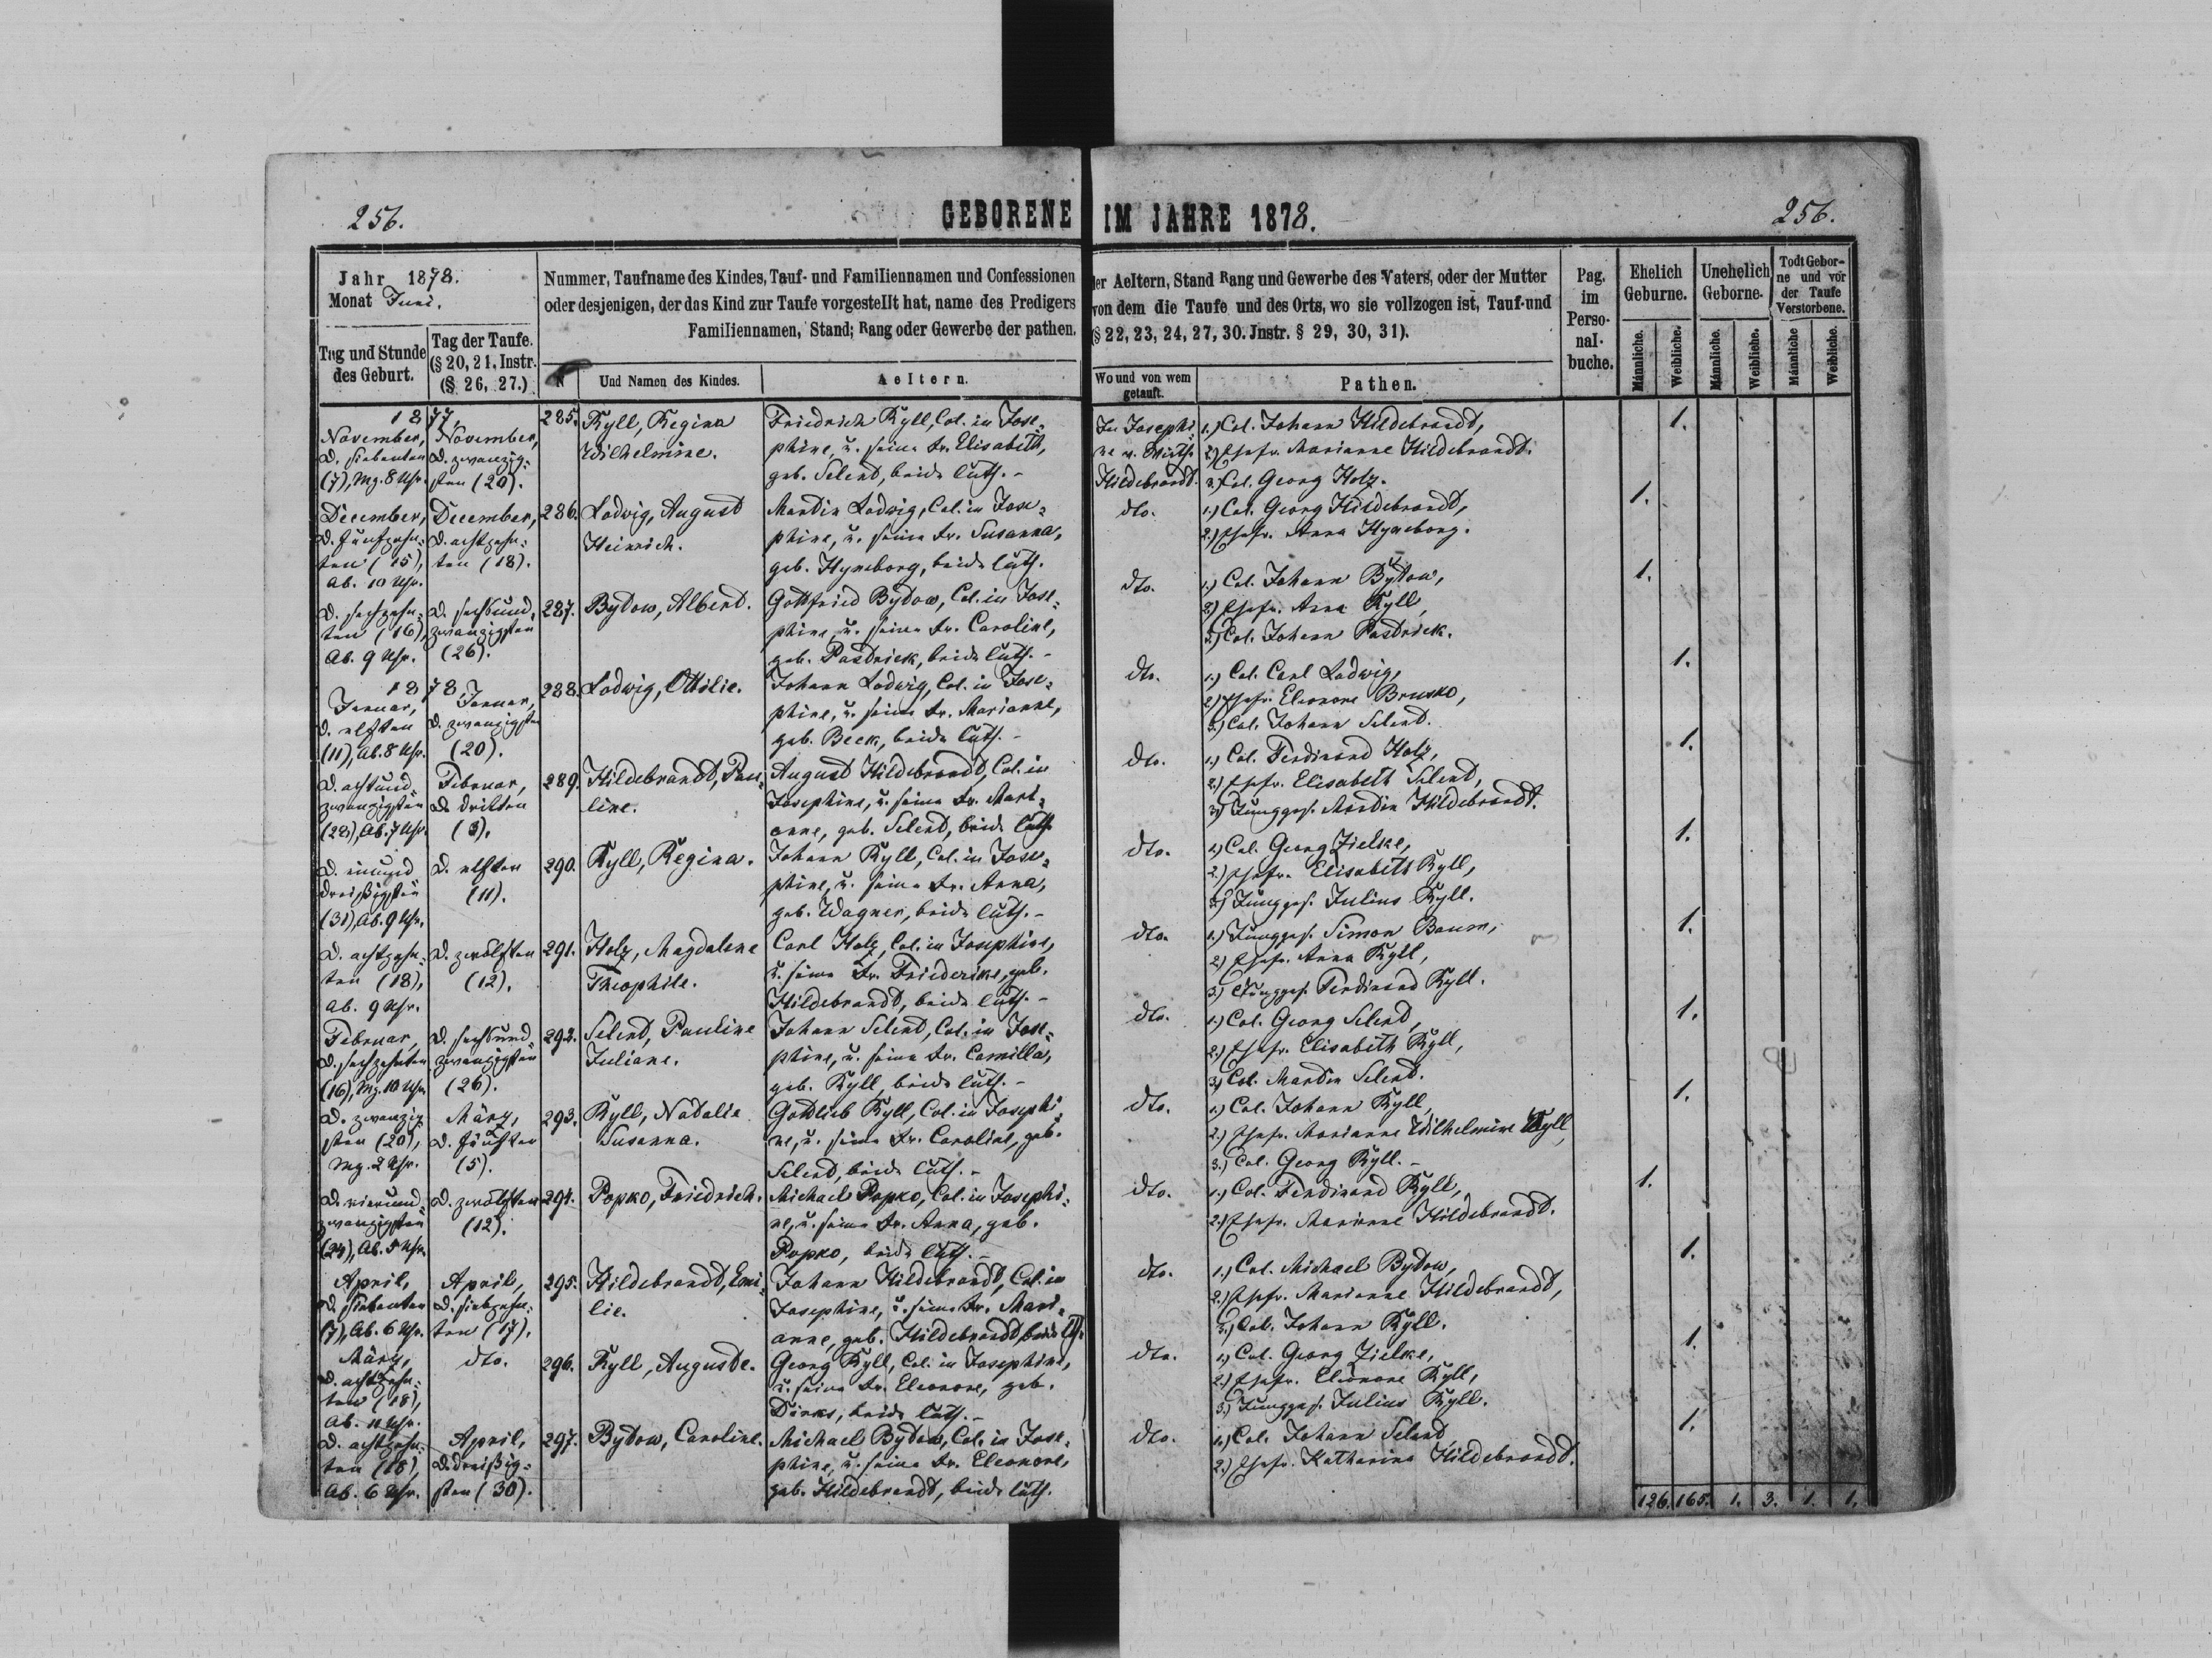 256.
GEBORENE IM JAHRE 1878.
256.
Jahr 1878.
Monat Juni.
Tag und Stunde des Geburt.
Tag der Taufe.
(§ 20, 21, Instr.
(§ 26, 27.)
Nummer, Taufname des Kindes, Tauf- und Familiennamen und Confessionen
oder desjenigen, der das Kind zur Taufe vorgestellt hat, name des Predigers
Familiennamen, Stand; Rang oder Gewerbe der pathen.
N
Und Namen des Kindes.
Aeltern.
der Aeltern, Stand Rang und Gewerbe des Vaters, oder der Mutter
von dem die Taufe und des Orts, wo sie vollzogen ist, Tauf-und
(§ 22, 23, 24, 27, 30. Jnstr. § 29, 30, 31).
Wo und von wem
getauft.
Pathen.
Pag.
im
Perso-
nal-
buche.
Ehelich
Geburne.
Unehelich
Geborne.
Todt Gebor-
ne und vor
der Taufe
Verstorbene.
Männliche.
Weibliche.
Männliche.
Weibliche.
Männliche
Weibliche.
1877.
November,
d. siebenten
(7), Mg. 8 Uhr.
November,
d. zwanzig-
sten (20).
285.
Kyll, Regina
Wilhelmine.
Friedrich Kyll, Col. in Jose-
phine, u. seine Fr. Elisabeth,
geb. Selend, beide luth. -
In Josephi-
ne v. Wirth
Hildebrandt.
1.) Col. Johann Hildebrandt,
2.) Ehefr. Marianne Hildebrandt.
3.) Col. Georg Holz.
1.
December,
d. fünfzehn-
ten (15),
Ab. 10 Uhr.
December,
d. achtzehn-
ten (18).
286.
Ladwig, August
Heinrich.
Martin Ladwig, Col. in Jose-
phine, u. seine Fr. Susanna,
geb. Hyneborg, beide luth.
dto.
1.) Col. Georg Hildebrandt,
2.) Ehefr. Anna Hyneborg.
1.
d. sechzehn-
ten (16),
Ab. 9 Uhr.
d. sechsund-
zwanzigsten
(26).
287.
Bytow, Albert.
Gottfried Bytow, Col. in Jose-
phine, u. seine Fr. Caroline,
geb. Pastriek, beide luth. -
dto.
1.) Col. Johann Bytow,
2.) Ehefr. Anna Kyll,
3.) Col. Johann Pastriek.
1.
1878.
Januar,
d. elften
(11), Ab. 8 Uhr.
Januar,
d. zwanzigsten
(20).
288.
Ladwig, Ottilie.
Johann Ladwig, Col. in Jose-
phine, u. seine Fr. Marianne,
geb. Beek, beide luth. -
dto.
1.) Col. Carl Ladwig,
2.) Ehefr. Eleonore Brusko,
3.) Col. Johann Selend.
1.
d. achtund-
zwanzigsten
(28), Ab. 7 Uhr.
Februar,
d. dritten
(3).
289.
Hildebrandt, Pau-
line.
August Hildebrandt, Col. in
Josephine, u. seine Fr. Mari-
anne, geb. Selend, beide luth.
dto.
1.) Col. Ferdinand Holz,
2.) Ehefr. Elisabeth Selend,
3.) Junggs. Martin Hildebrandt.
1.
d. einund
dreißigsten
(31), Ab. 9 Uhr.
d. elften
(11).
290.
Kyll, Regina.
Johann Kyll, Col. in Jose-
phine, u. seine Fr. Anna,
geb. Wagner, beide luth. -
dto.
1.) Col. Georg Zielke,
2.) Ehefr. Elisabeth Kyll,
3.) Junggs. Julius Kyll.
1.
d. achtzehn-
ten (18),
Ab. 9 Uhr.
d. zwölften
(12).
291.
Holz, Magdalena
Theophile.
Carl Holz, Col. in Josephine,
u. seine Fr. Friederike, geb.
Hildebrandt, beide luth. -
dto.
1.) Junggs. Simon Baum,
2.) Ehefr. Anna Kyll,
3.) Junggs. Ferdinand Kyll.
1.
Februar,
d. sechzehnten
(16), Mg. 10 Uhr.
d. sechsund
zwanzigsten
(26).
292.
Selend, Pauline
Juliane.
Johann Selend, Col. in Jose-
phine, u. seine Fr. Camilla,
geb. Kyll, beide luth. -
dto.
1.) Col. Georg Selend,
2.) Ehefr. Elisabeth Kyll,
3.) Col. Martin Selend.
1.
d. zwanzig-
sten (20),
Mg. 2 Uhr.
März,
d. fünften
(5).
293.
Kyll, Natalia
Susanna.
Gottlieb Kyll, Col. in Josephi-
ne, u. seine Fr. Caroline, geb.
Selend, beide luth. -
dto.
1.) Col. Johann Kyll,
2.) Ehefr. Marianne Wilhelmine Kyll,
3.) Col. Georg Kyll. -
1.
d. vierund-
zwanzigsten
(24), Ab. 5 Uhr.
d. zwölften
(12).
294.
Popko, Friedrich.
Michael Popko, Col. in Josephi-
ne, u. seine Fr. Anna, geb.
Popko, beide luth. -
dto.
1.) Col. Ferdinand Kyll,
2.) Ehefr. Marianne Hildebrandt.
1.
April,
d. siebenten
(7), Ab. 6 Uhr.
April,
d. siebzehn-
ten (17).
295.
Hildebrandt, Emi-
lie.
Johann Hildebrandt, Col. in
Josephine, u. seine Fr. Mari-
anne, geb. Hildebrandt, beide luth.
dto.
1.) Col. Michael Bytow,
2.) Ehefr. Marianne Hildebrandt,
3.) Col. Johann Kyll.
1.
März,
d. achtzehn-
ten (18),
Ab. 11 Uhr.
dto.
296.
Kyll, Auguste.
Georg Kyll, Col. in Josephine,
u. seine Fr. Eleonore, geb.
Dirks, beide luth. -
dto.
1.) Col. Georg Zielke,
2.) Ehefr. Eleonore Kyll,
3.) Junggs. Julius Kyll.
1.
d. achtzehn-
ten (18),
Ab. 6 Uhr.
April,
d. dreißig-
sten (30).
297.
Bytow, Caroline.
Michael Bytow, Col. in Jose-
phine, u. seine Fr. Eleonore,
geb. Hildebrandt, beide luth.
dto.
1.) Col. Johann Selend
2.) Ehefr. Katharina Hildebrandt.
1.
126. 165. 1. 3. 1. 1.